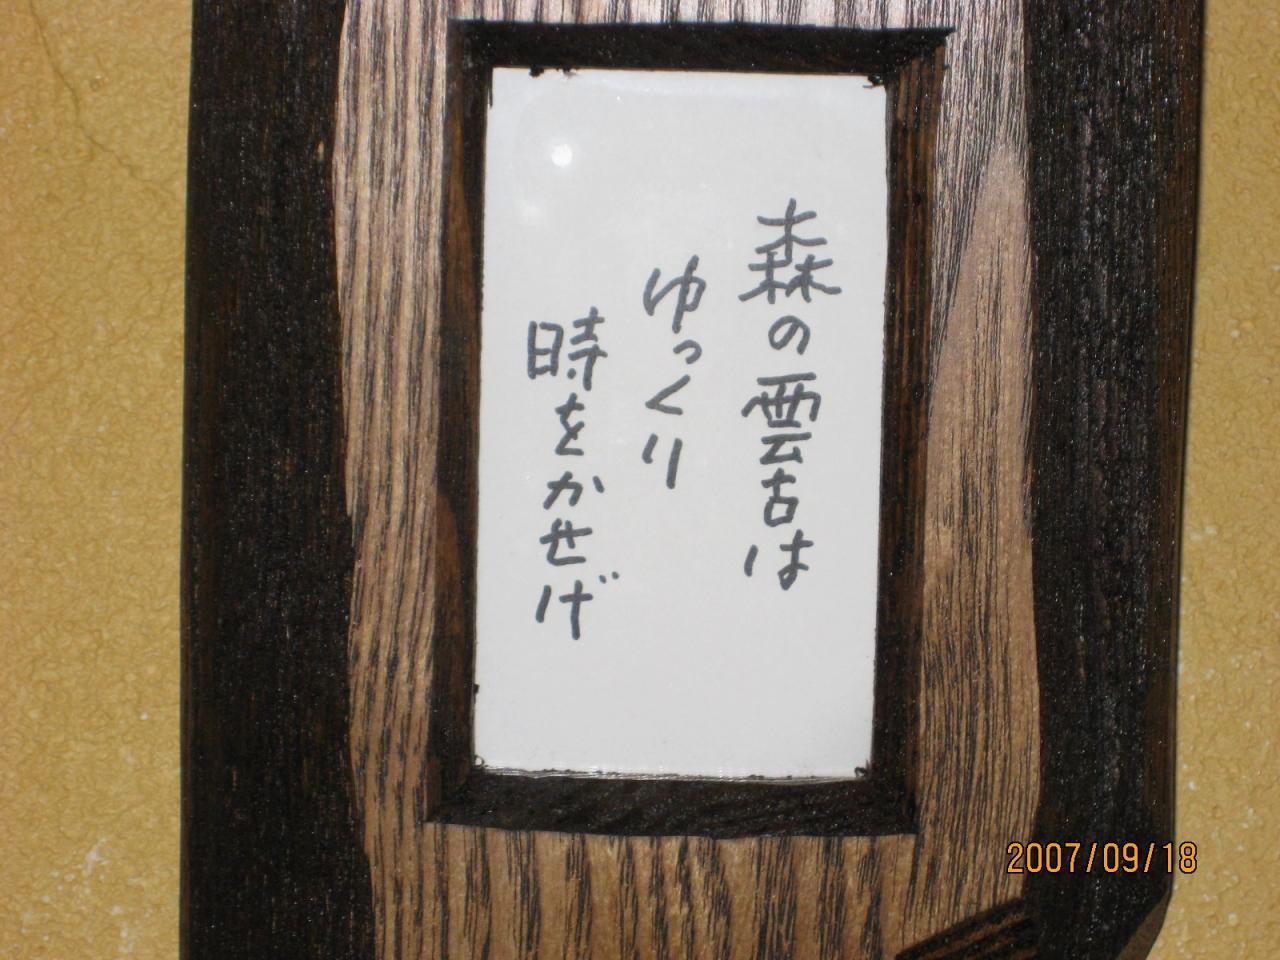 森の雲古は
ゆっくり
時をかせげ
2007/09/18